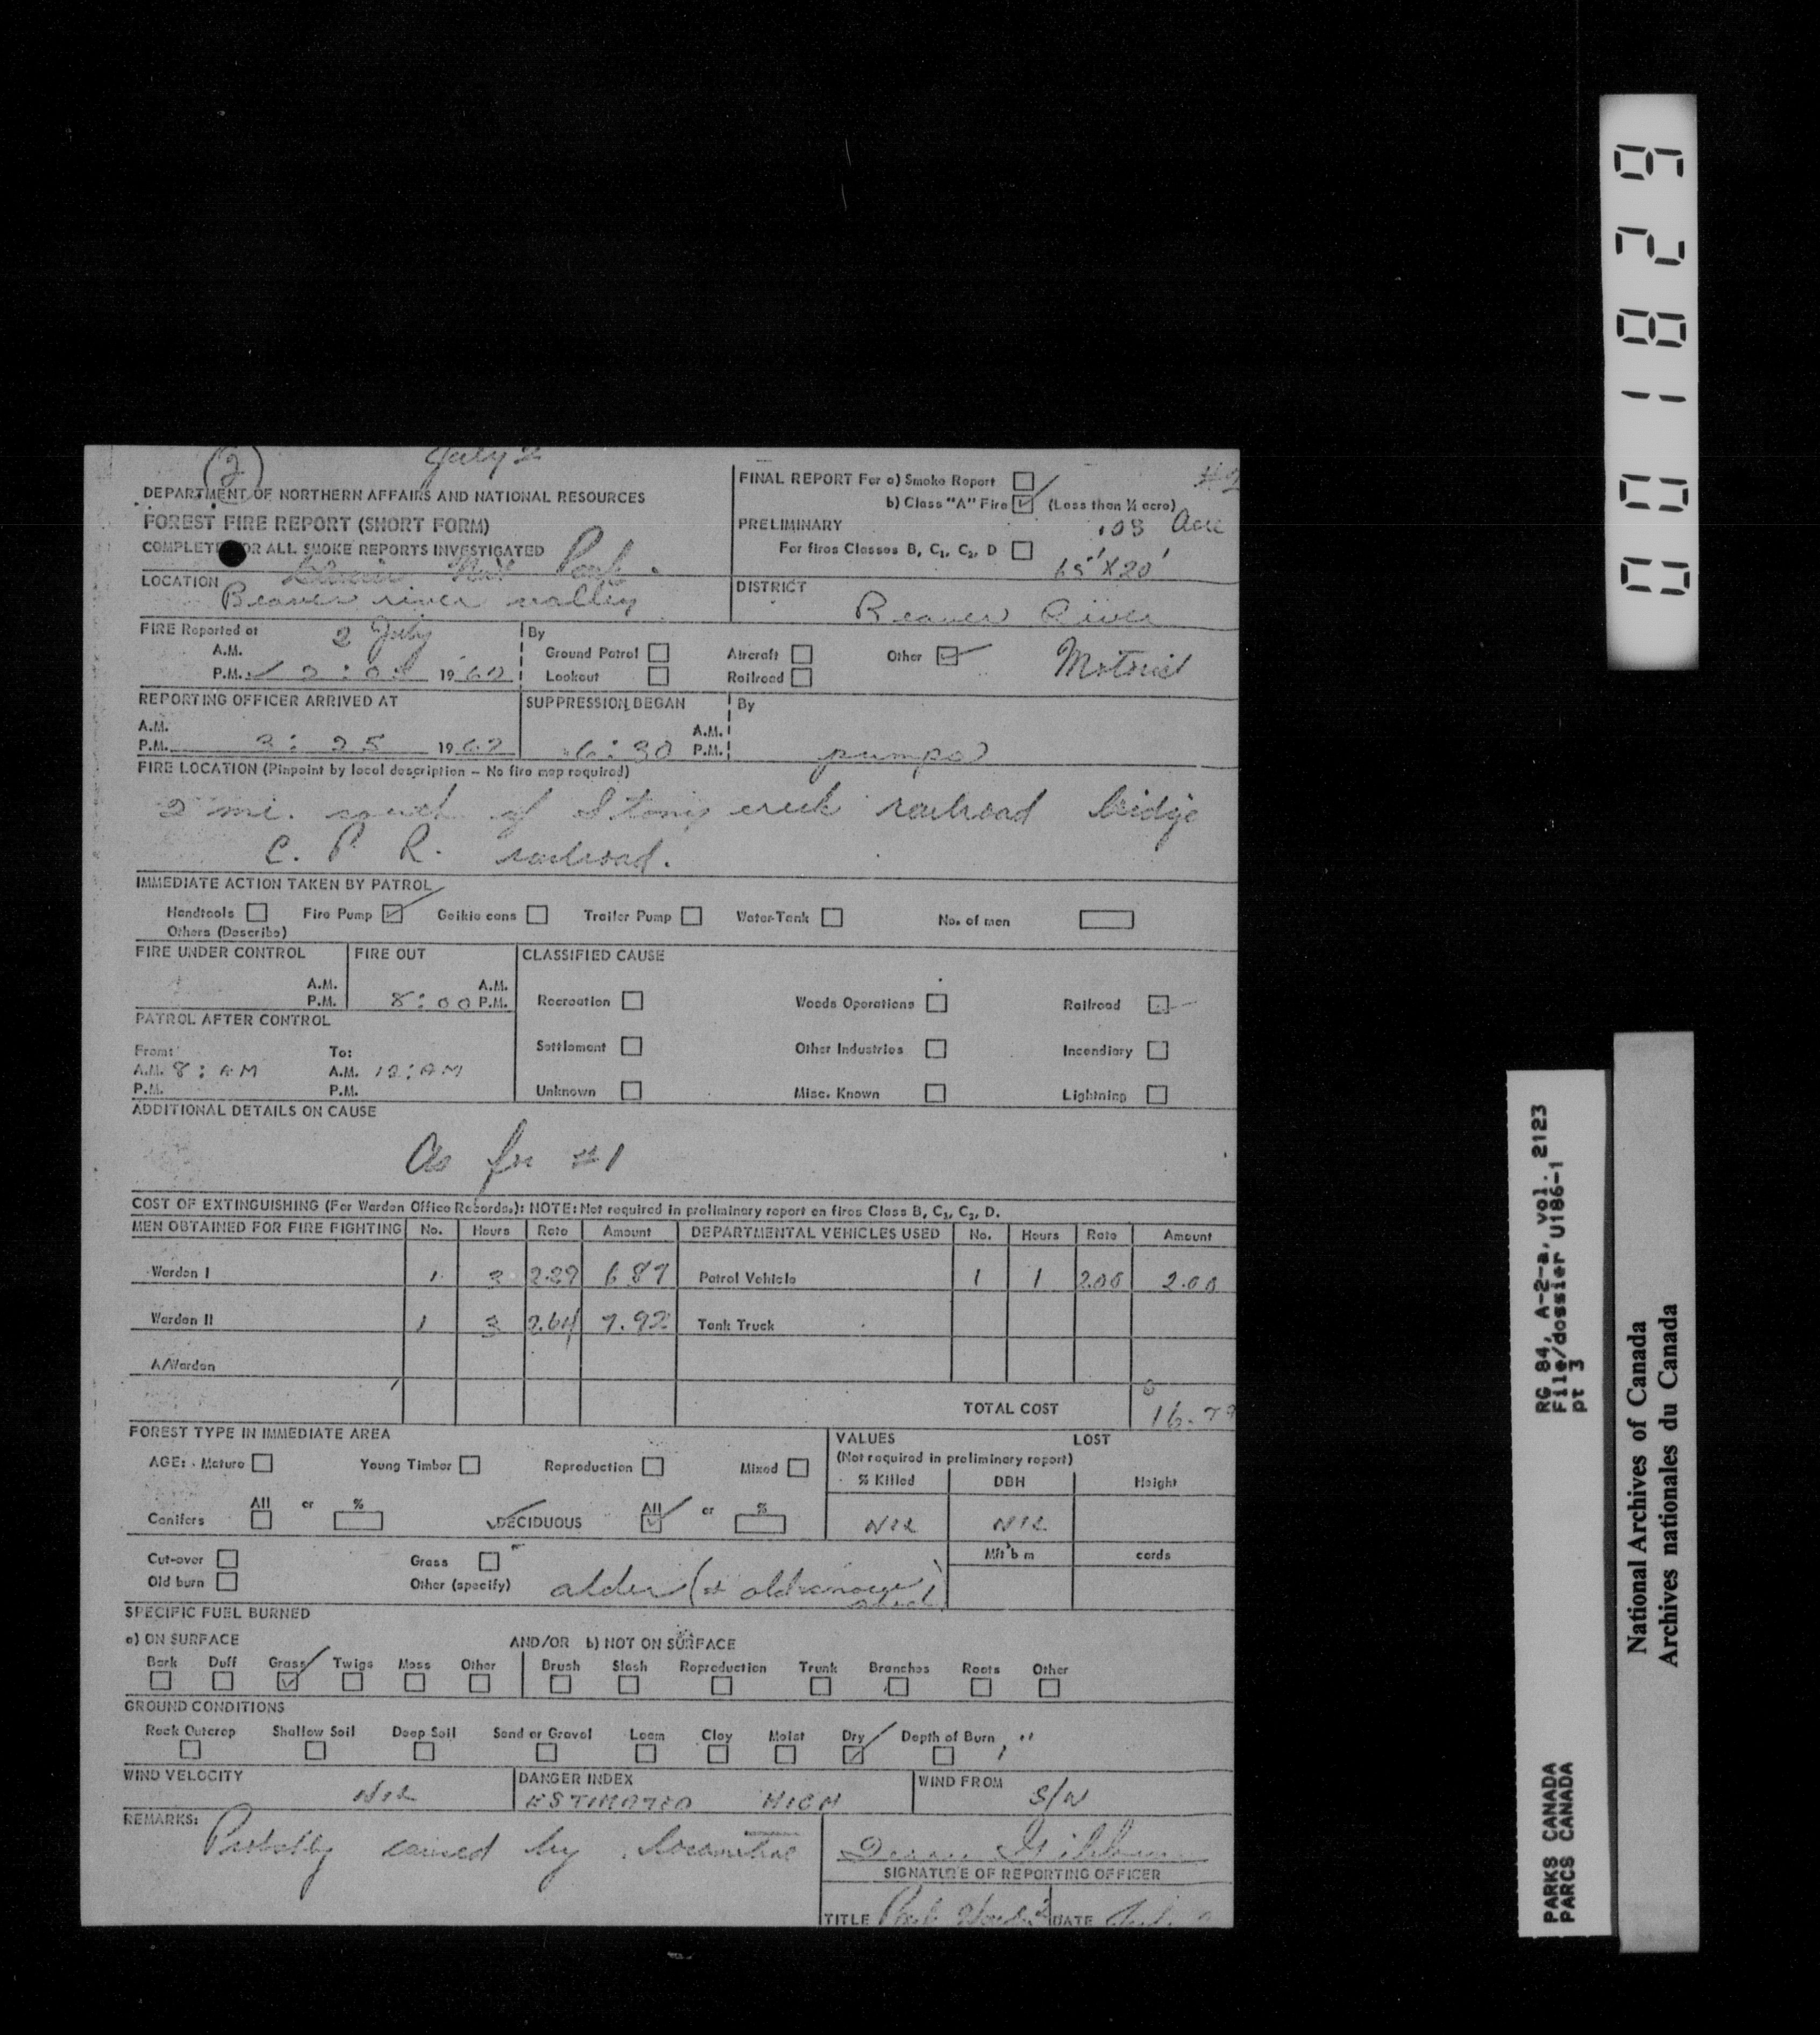 (2) July 2
DEPARTMENT OF NORTHERN AFFAIRS AND NATIONAL RESOURCES
FOREST FIRE REPORT (SHORT FORM)
COMPLETE FOR ALL SMOKE REPORTS INVESTIGATED
FINAL REPORT For a) Smoke Report
b) Class "A" Fire (Less than ¼ acre)
.03 Acre
PRELIMINARY
For fires Classes B, C₁, C₂, D
65' X 20'
Park.
LOCATION Beaver river valley
DISTRICT Beaver River
FIRE Reported at 2 July
A.M.
P.M. 1962
By
Ground Patrol Aircraft Other Motorist
Lookout Railroad
REPORTING OFFICER ARRIVED AT
A.M.
P.M. 3:25 1962
SUPPRESSION BEGAN
A.M.
6:30 P.M.
By
pumps
FIRE LOCATION (Pinpoint by local description – No fire map required)
2 mi. south of Stoney creek railroad bridge
C. P. R. railroad.
IMMEDIATE ACTION TAKEN BY PATROL
Handtools Fire Pump Geikie cans Trailer Pump Water-Tank No. of men
Others (Describe)
FIRE UNDER CONTROL
A.M.
P.M.
FIRE OUT
A.M.
8:00 P.M.
CLASSIFIED CAUSE
Recreation Woods Operations Railroad
Settlement Other Industries Incendiary
Unknown Misc. Known Lightning
PATROL AFTER CONTROL
From: To:
A.M. 8: AM A.M. 12: AM
P.M. P.M.
ADDITIONAL DETAILS ON CAUSE
As for #1
COST OF EXTINGUISHING (For Warden Office Records.): NOTE: Not required in preliminary report on fires Class B, C₁, C₂, D.
MEN OBTAINED FOR FIRE FIGHTING No. Hours Rate Amount DEPARTMENTAL VEHICLES USED No. Hours Rate Amount
Warden I 1 3 2.29 6.87 Patrol Vehicle 1 1 2.00 2.00
Warden II 1 3 2.64 7.92 Tank Truck
A/Warden
TOTAL COST 16.79
FOREST TYPE IN IMMEDIATE AREA
AGE: Mature Young Timber Reproduction Mixed
All or % All or %
Conifers DECIDUOUS
VALUES LOST
(Not required in preliminary report)
% Killed DBH Height
NIL NIL
Mft b m cords
Cut-over Grass
Old burn Other (specify) alder
SPECIFIC FUEL BURNED
a) ON SURFACE AND/OR b) NOT ON SURFACE
Bark Duff Grass Twigs Moss Other Brush Slash Reproduction Trunk Branches Roots Other
GROUND CONDITIONS
Rock Outcrop Shallow Soil Deep Soil Sand or Gravel Loam Clay Moist Dry Depth of Burn 1"
WIND VELOCITY NIL
DANGER INDEX ESTIMATED HIGH
WIND FROM S/W
REMARKS: Probably caused by locomotive
SIGNATURE OF REPORTING OFFICER
TITLE DATE
001829
RG 84, A-2-a, vol. 2123
File/dossier U186-1
pt 3
PARKS CANADA
PARCS CANADA
National Archives of Canada
Archives nationales du Canada